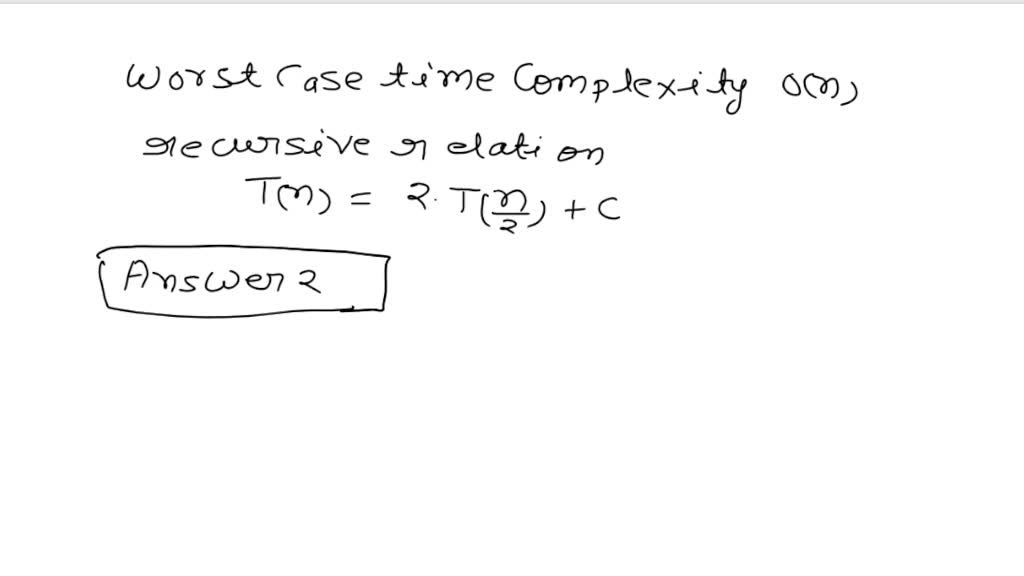 Worst Case time Complexity O(n)
recursive relation
T(n) = 2. T(n/2) + C
Answer 2